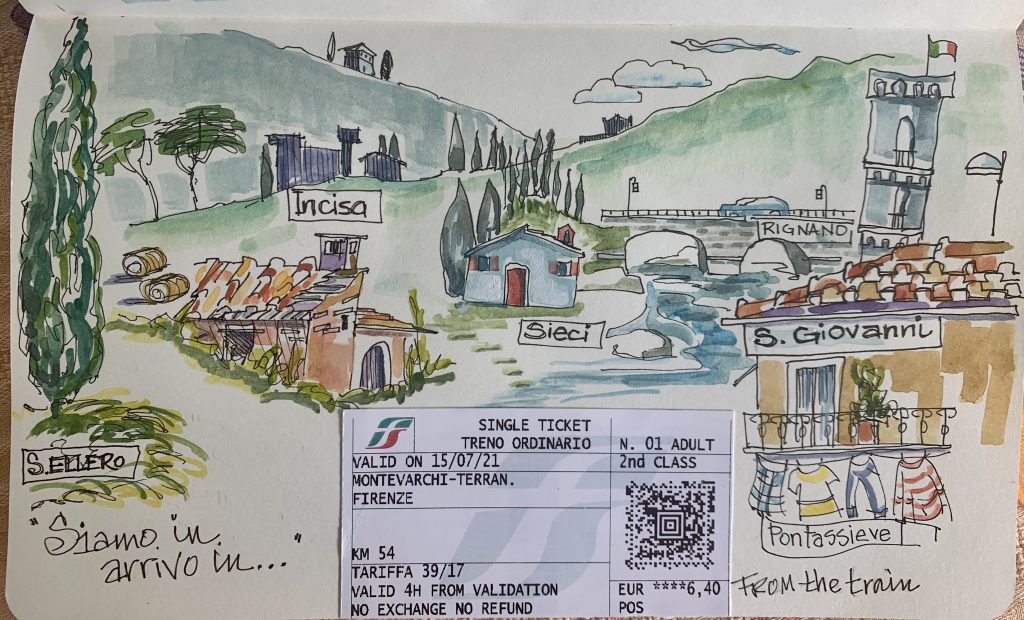 Incisa
RIGNANO
Sieci
S. GIOVANNI
S. ELLERO
Pontassieve
"Siamo in
arrivo in..."
FROM the train
SINGLE TICKET
TRENO ORDINARIO
N. 01 ADULT
VALID ON 15/07/21
2nd CLASS
MONTEVARCHI-TERRAN.
FIRENZE
KM 54
TARIFFA 39/17
VALID 4H FROM VALIDATION
NO EXCHANGE NO REFUND
EUR ****6,40
POS